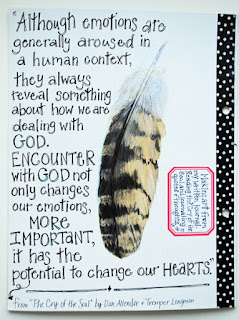 "Although emotions are
generally aroused in
a human context,
they always
reveal something
about how we are
dealing with
GOD.
ENCOUNTER
with GOD not
only changes
our emotions,
MORE
IMPORTANT,
it has the
potential to change our HEARTS."
From "The Cry of the Soul" by Dan Allender & Tremper Longman
Making art from